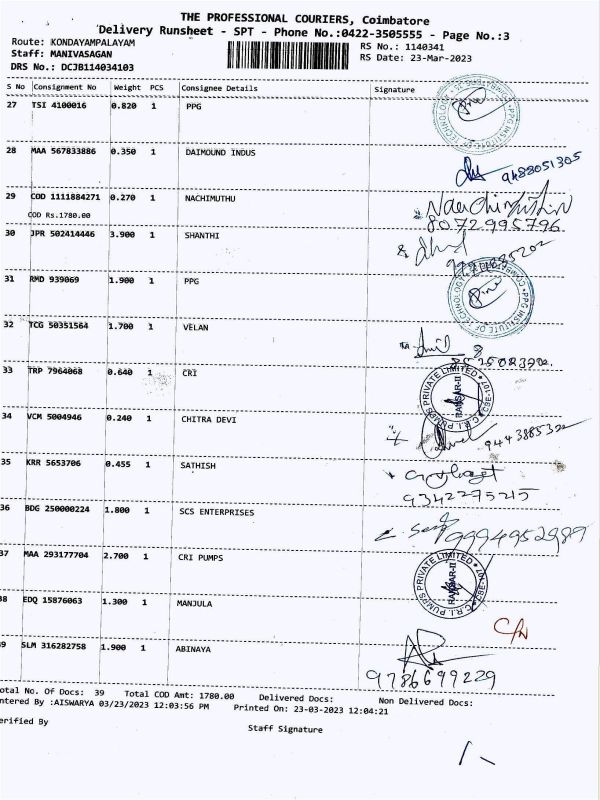 THE PROFESSIONAL COURIERS, Coimbatore
Delivery Runsheet - SPT - Phone No.:0422-3505555 - Page No.:3
Route: KONDAYAMPALAYAM
Staff: MANIVASAGAN
DRS No.: DCJB114034103
RS No.: 1140341
RS Date: 23-Mar-2023
S No Consignment No Weight PCS Consignee Details Signature
27 TSI 4100016 0.820 1 PPG
28 MAA 567833886 0.350 1 DAIMOUND INDUS
9488051305
29 COD 1111884271 0.270 1 NACHIMUTHU
COD Rs.1780.00
8072995796
30 JPR 502414446 3.900 1 SHANTHI
31 RMD 939069 1.900 1 PPG
PPG INSTITUTE OF TECHNOLOGY
32 TCG 50351564 1.700 1 VELAN
33 TRP 7964068 0.640 1 CRI
C.R.I. PUMPS PRIVATE LIMITED
RANSAR-II
34 VCM 5004946 0.240 1 CHITRA DEVI
35 KRR 5653706 0.455 1 SATHISH
9342275215
36 BDG 250000224 1.800 1 SCS ENTERPRISES
9994952989
37 MAA 293177704 2.700 1 CRI PUMPS
C.R.I. PUMPS PRIVATE LIMITED
RANSAR-II
38 EDQ 15876063 1.300 1 MANJULA
C/N
39 SLM 316282758 1.900 1 ABINAYA
9786699229
otal No. Of Docs: 39 Total COD Amt: 1780.00 Delivered Docs: Non Delivered Docs:
ntered By :AISWARYA 03/23/2023 12:03:56 PM Printed On: 23-03-2023 12:04:21
erified By
Staff Signature